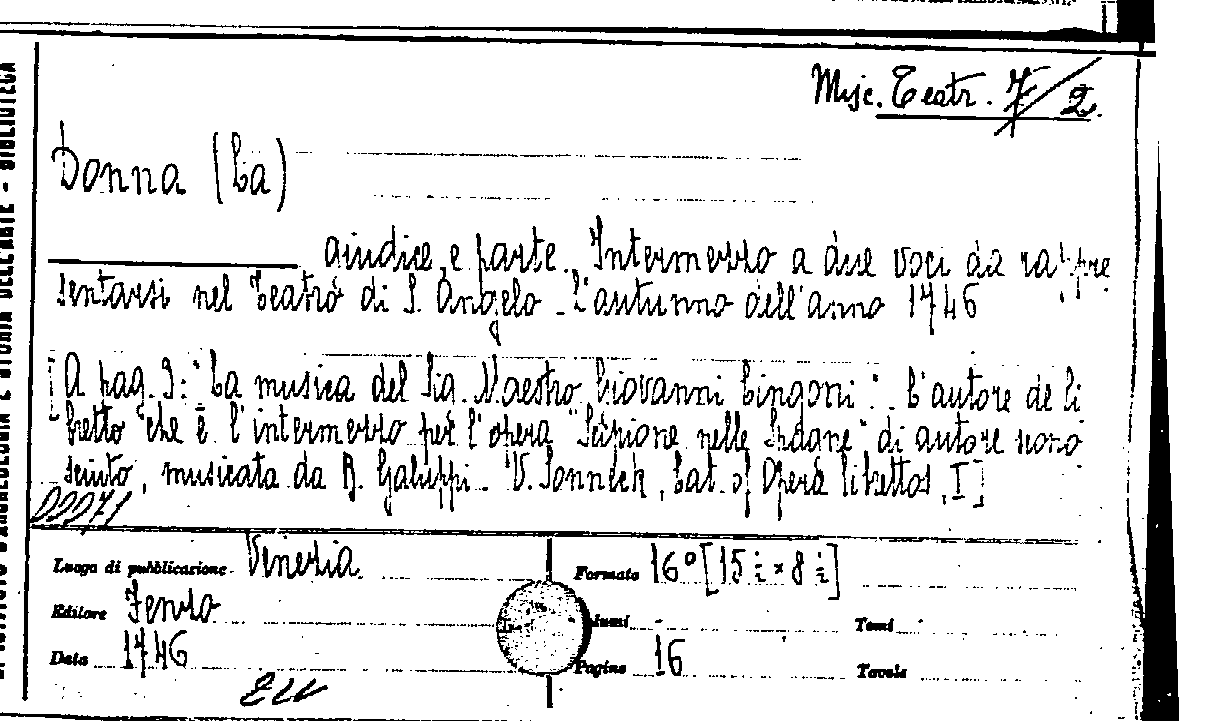 BIBLIOTECA
Misc. Teatr. 7/2.
Donna (La)
giudice e parte. Intermezzo a due voci da rappre
sentarsi nel Teatro di S. Angelo - l'autunno dell'anno 1746
[A pag. 3: "La musica del Sig. Maestro Giovanni Cingoni". L'autore de li
bretto che è l'intermezzo per l'opera "Scipione nelle Spagne" di autore scono
sciuto, musicata da B. Galuppi. V. Sonneck, Cat. of Opera librettos, I]
Luogo di pubblicazione Venezia
Formato 16° [15 ½ × 8 ½]
Editore Fenzo
Tomi
Data 1746
Pagine 16
Tavole